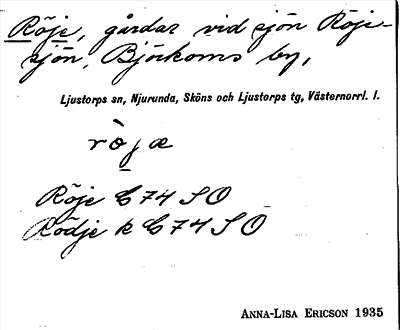 Röje, gårdar vid sjön Röje-
sjön, Björkoms by,
Ljustorps sn, Njurunda, Sköns och Ljustorps tg, Västernorrl. l.
rò̱jæ
Röje C 74 S O
Rödje k C 74 S O
ANNA-LISA ERICSON 1935